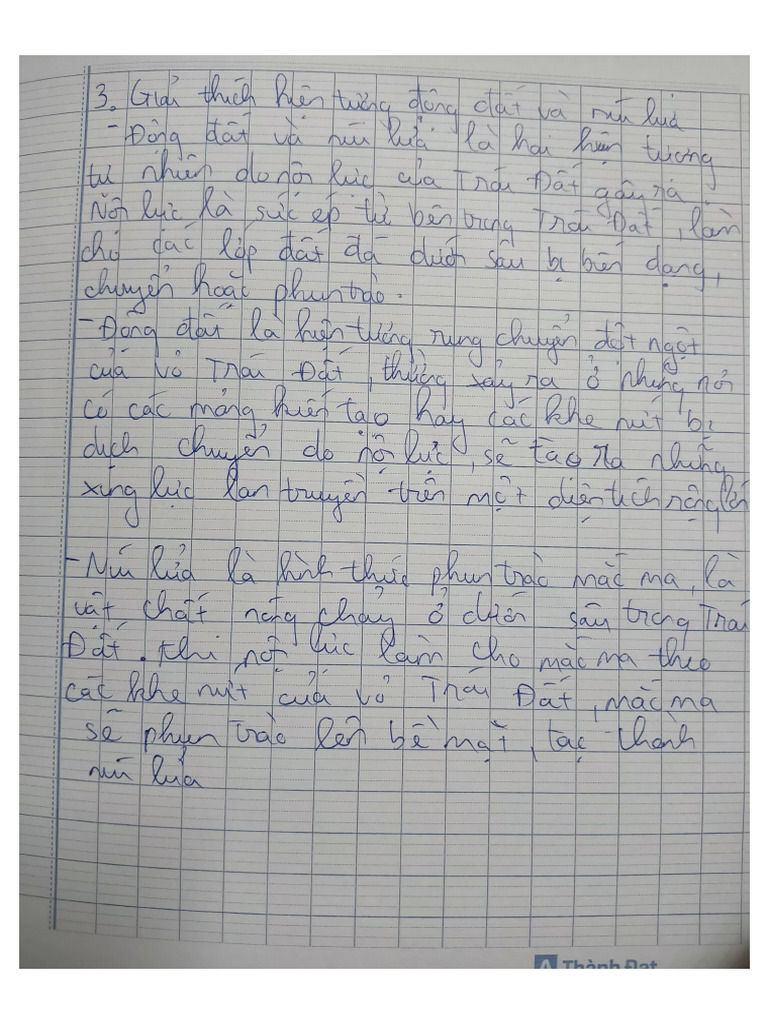 3. Giải thích hiện tượng động đất và núi lửa
- Động đất và núi lửa là hai hiện tượng
tự nhiên do nội lực của Trái Đất gây ra.
Nội lực là sức ép từ bên trong Trái Đất, làm
cho các lớp đất đá dưới sâu bị biến dạng,
chuyển hoặc phun trào.
- Động đất là hiện tượng rung chuyển đột ngột
của vỏ Trái Đất, thường xảy ra ở những nơi
có các mảng kiến tạo hay các khe nứt bị
dịch chuyển do nội lực, sẽ tạo ra những
xung lực lan truyền trên một diện tích rộng lớn
- Núi lửa là hình thức phun trào mắc ma, là
vật chất nóng chảy ở dưới sâu trong Trái
Đất. Khi nội lực làm cho mắc ma theo
các khe nứt của vỏ Trái Đất, mắc ma
sẽ phun trào lên bề mặt, tạo thành
núi lửa
Thành Đạt